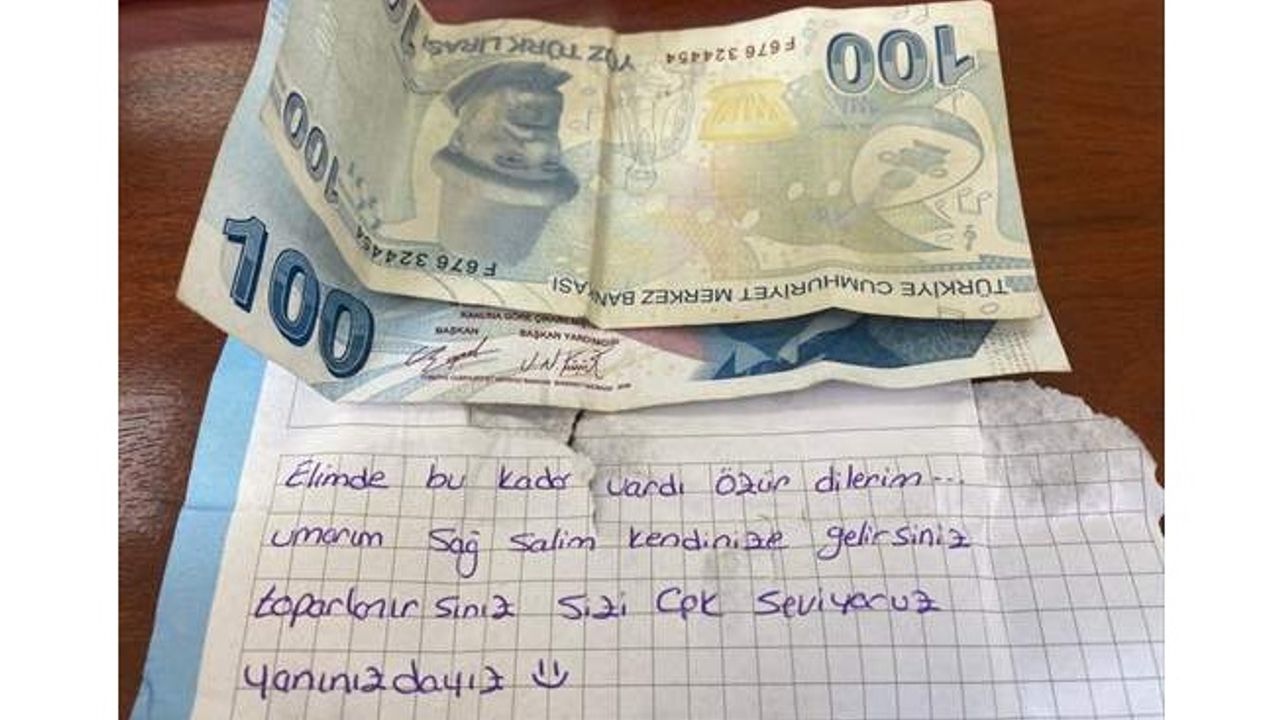 100
YÜZ TÜRK LİRASI
F676 324454
100
100
F676 324454
TÜRKİYE CUMHURİYET MERKEZ BANKASI
100
BAŞKAN
BAŞKAN YARDIMCISI
Elimde bu kadar vardı özür dilerim...
umarım sağ salim kendinize gelirsiniz
toparlanırsınız sizi çok seviyoruz
yanınızdayız